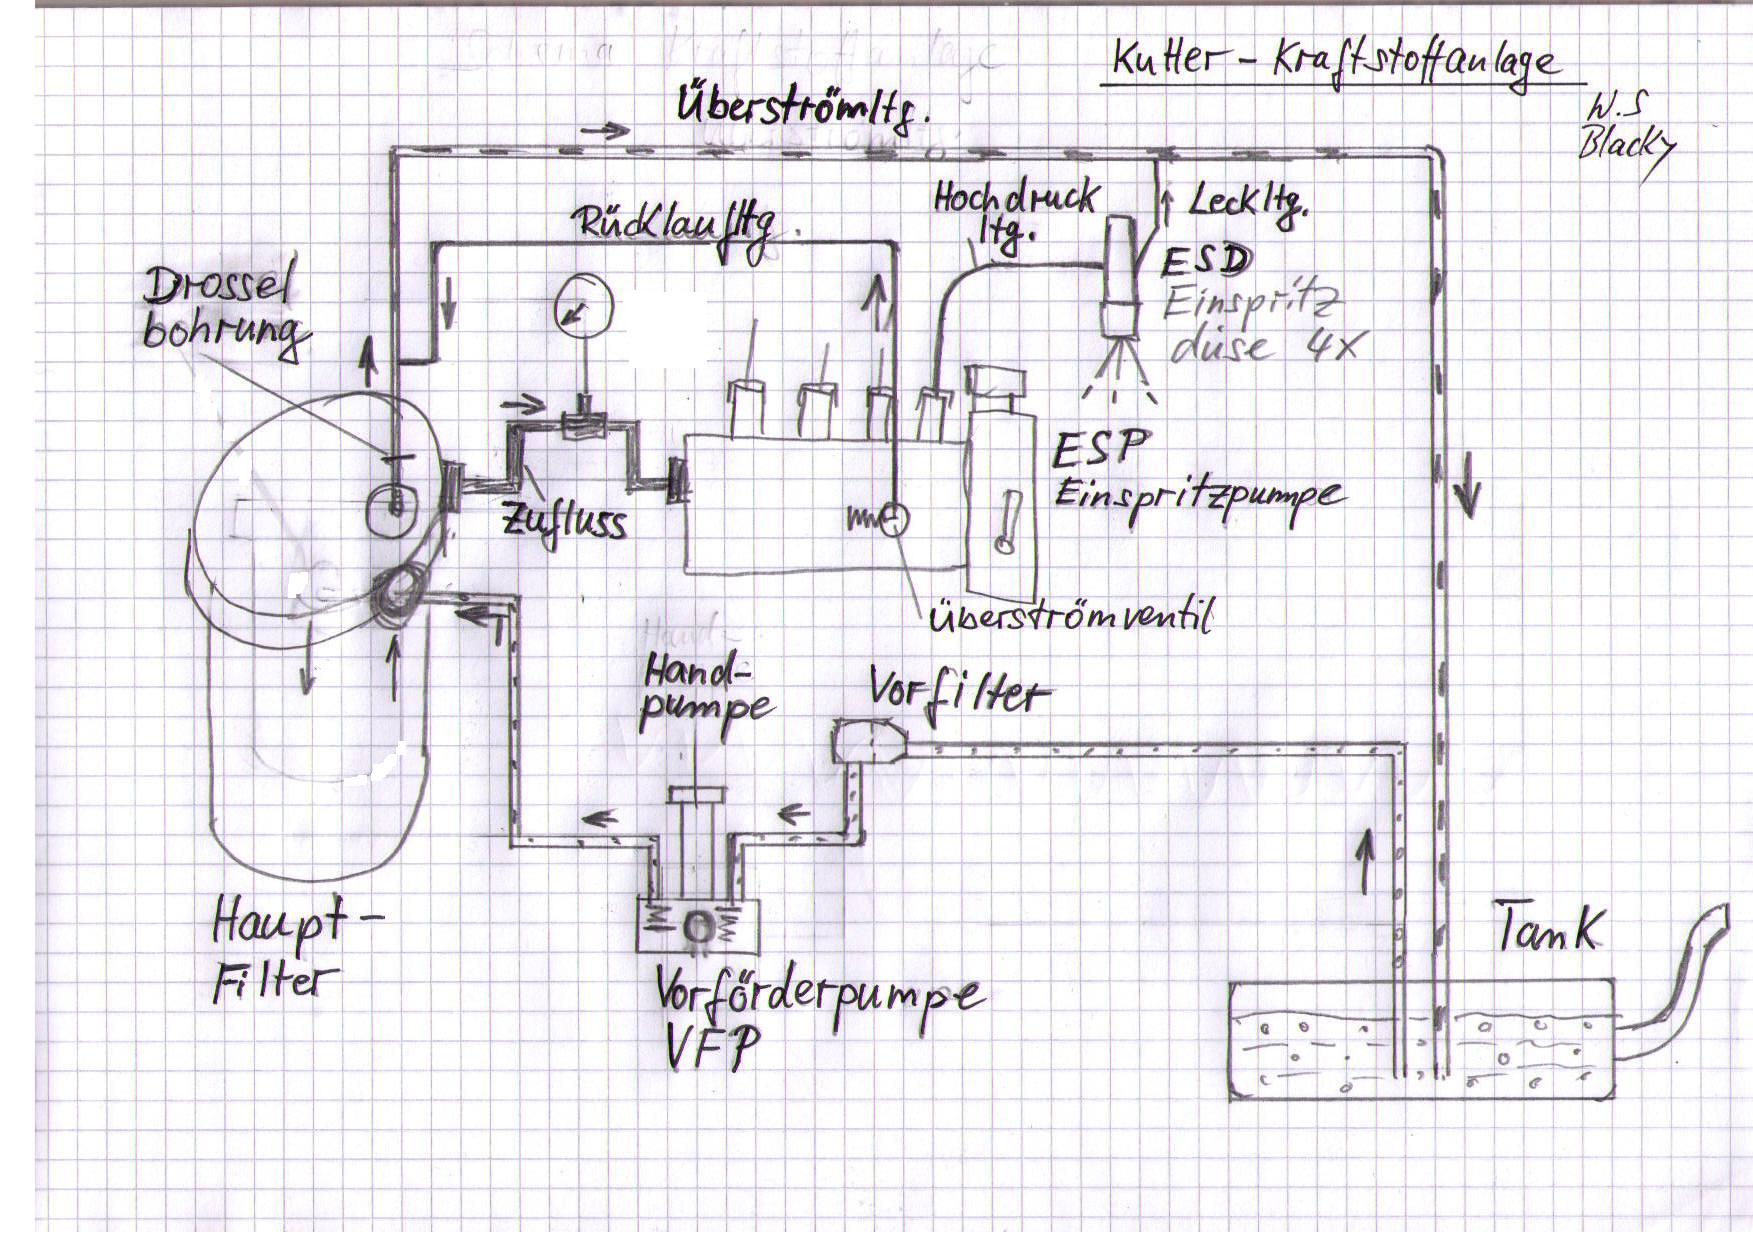 Kutter - Kraftstoffanlage
W.S
Blacky
Überströmltg.
Rücklaufltg.
Hochdruck
ltg.
Leckltg.
ESD
Einspritz
düse 4x
Drossel
bohrung
Zufluss
ESP
Einspritzpumpe
Überströmventil
Hand-
pumpe
Vorfilter
Haupt-
Filter
Vorförderpumpe
VFP
Tank